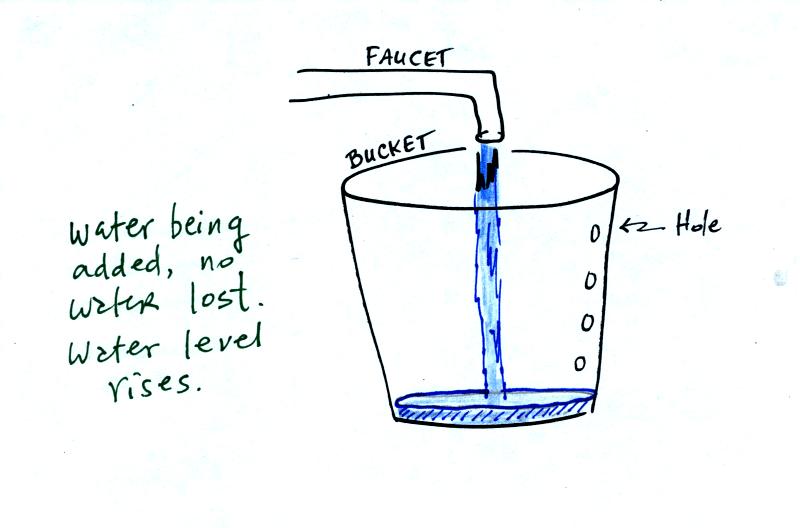 FAUCET
BUCKET
Hole
water being
added, no
water lost.
Water level
rises.